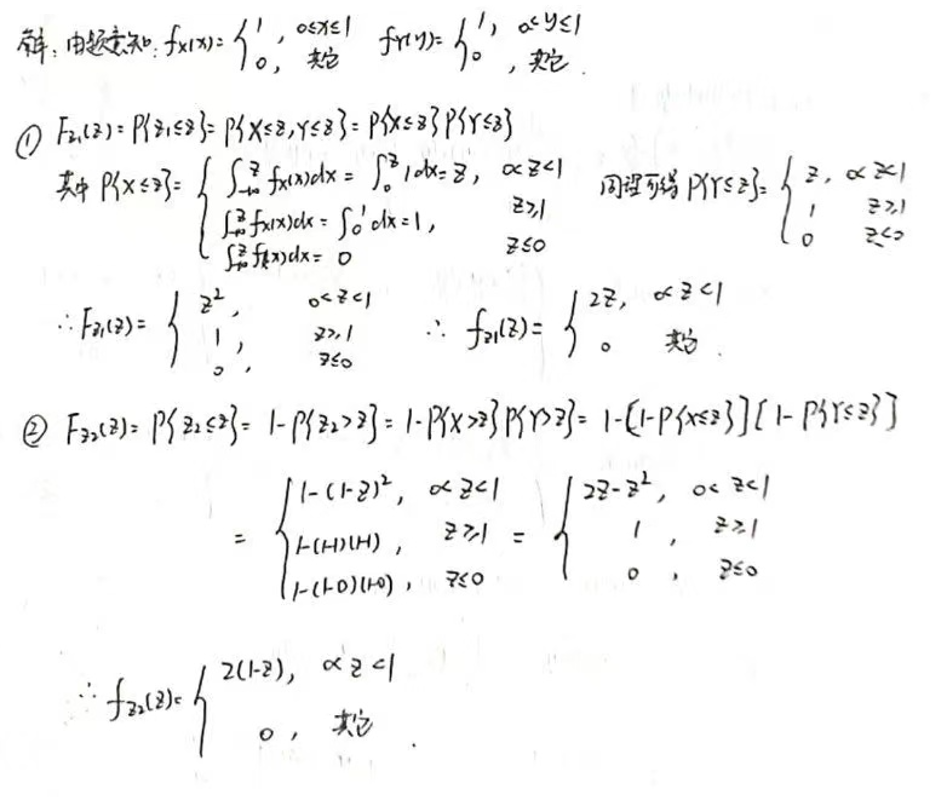 解：由题意知：f_X(x)= { 1, 0≤x≤1 ; 0, 其它   f_Y(y)= { 1, 0<y≤1 ; 0, 其它.
① F_{Z1}(z)=P{Z1≤z}=P{X≤z,Y≤z}=P{X≤z}P{Y≤z}
其中 P{X≤z}= { ∫_{-∞}^{z} f_X(x)dx = ∫_0^z 1dx=z, 0<z<1 ; ∫_{-∞}^{z} f_X(x)dx = ∫_0^1 dx=1, z≥1 ; ∫_{-∞}^{z} f(x)dx= 0 z≤0   同理可得 P{Y≤z}= { z, 0<z<1 ; 1 z≥1 ; 0 z≤0
∴ F_{Z1}(z)= { z², 0<z<1 ; 1, z≥1 ; 0, z≤0   ∴ f_{Z1}(z)= { 2z, 0<z<1 ; 0 其它.
② F_{Z2}(z)=P{Z2≤z}= 1-P{Z2>z}=1-P{X>z}P{Y>z}= 1-[1-P{X≤z}][1-P{Y≤z}]
= { 1-(1-z)², 0<z<1 ; 1-(1-1)(1-1), z≥1 ; 1-(1-0)(1-0), z≤0 = { 2z-z², 0<z<1 ; 1, z≥1 ; 0, z≤0
∴ f_{Z2}(z)= { 2(1-z), 0<z<1 ; 0, 其它.